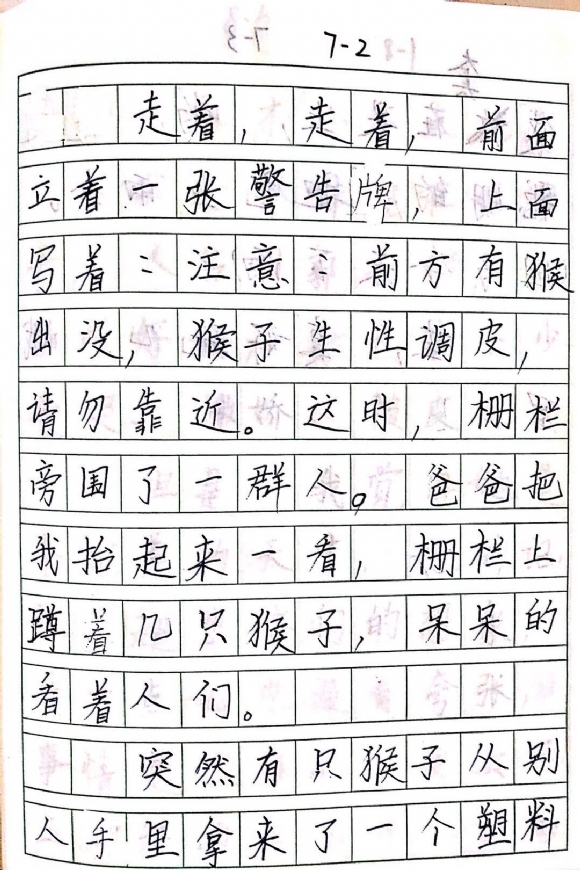 7-2
走着,走着,前面
立着一张警告牌,上面
写着:注意:前方有猴
出没,猴子生性调皮,
请勿靠近。这时,栅栏
旁围了一群人。爸爸把
我抬起来一看,栅栏上
蹲着几只猴子,呆呆的
看着人们。
突然有只猴子从别
人手里拿来了一个塑料